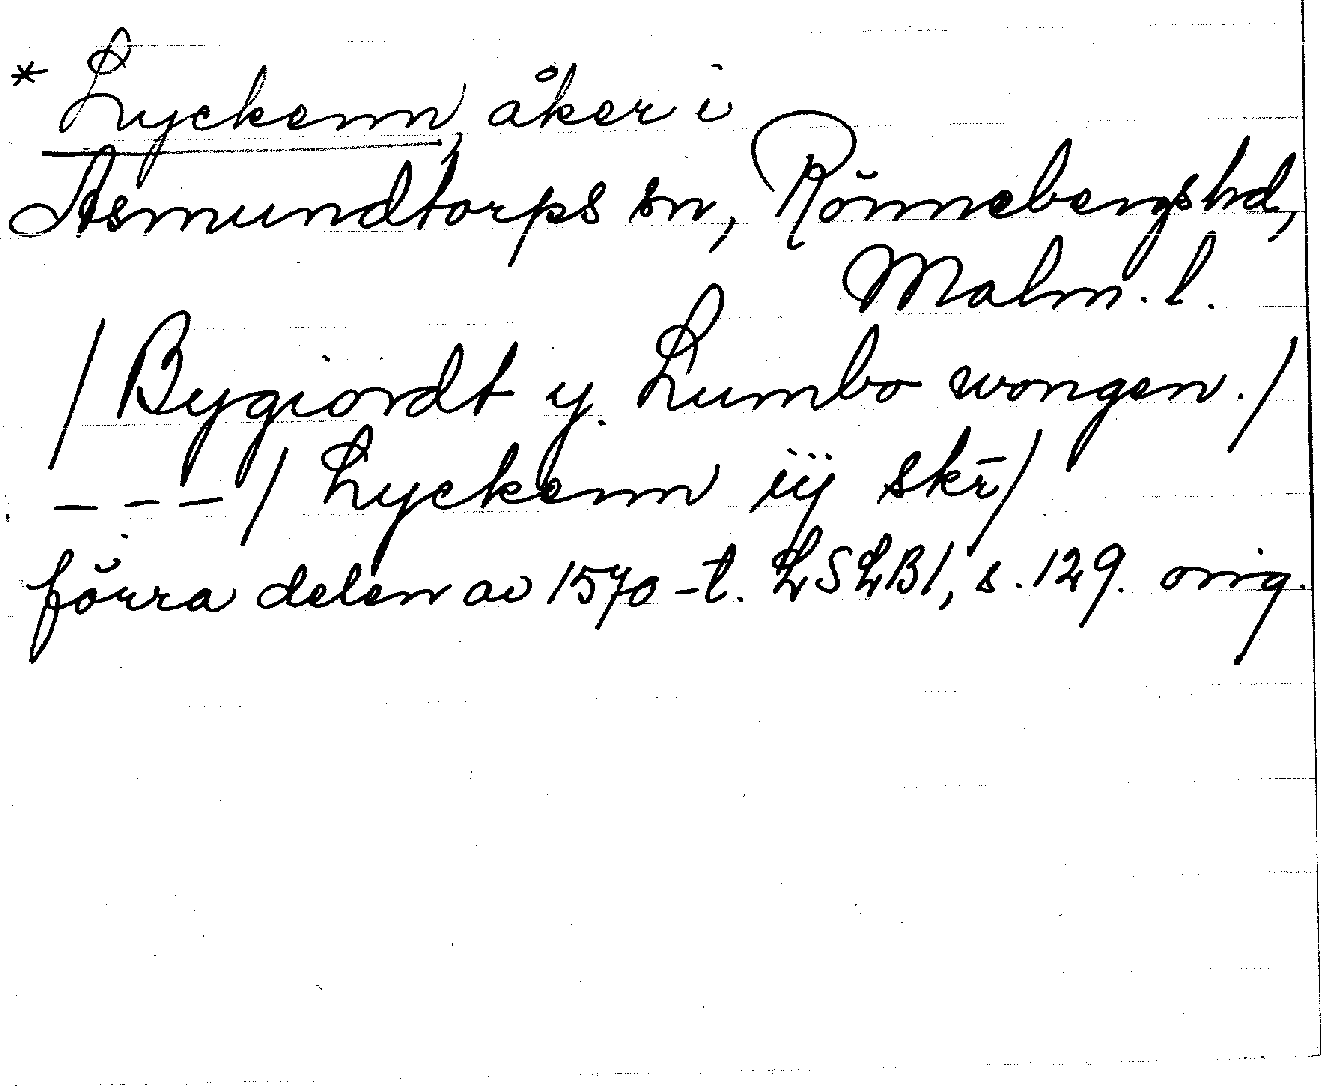 * Lyckenn, åker i
Asmundtorps sn, Rönnebergs hd,
Malm. l.
/ Bygiordt y. Lumbo wongen. /
– – – / Lyckenn iij skr̄ /
förra delen av 1570-t. LSLB1, s. 129. orig.